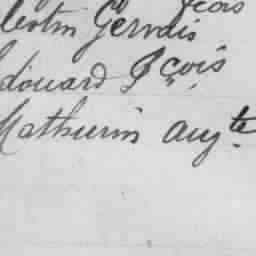 çois
Gervais
douard Fçois
Mathurin Augte